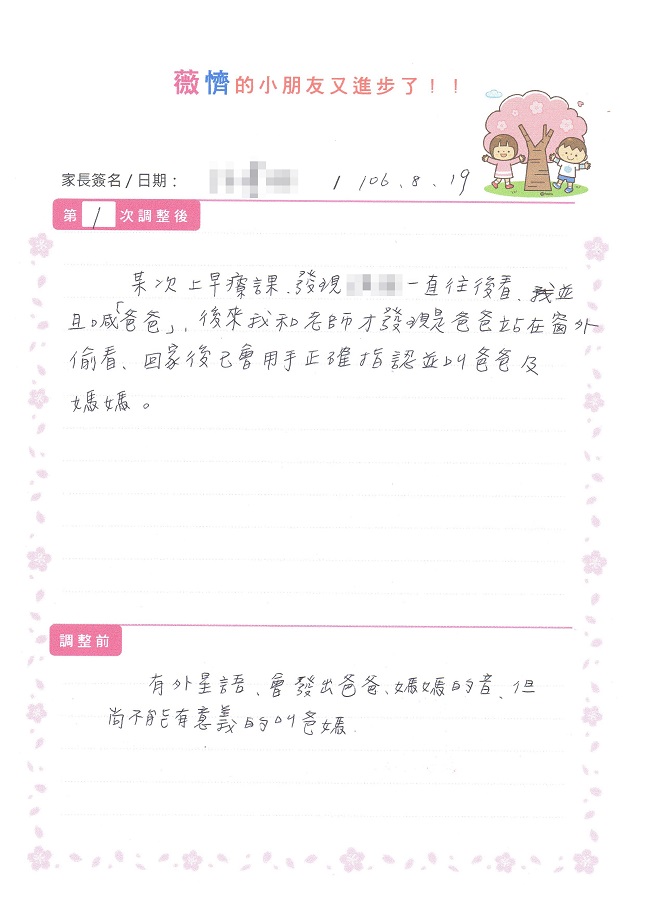 薇懠的小朋友又進步了！！
家長簽名/日期： / 106、8、19
第1次調整後
某次上早療課、發現 一直往後看、並
且喊「爸爸」，後來我和老師才發現是爸爸站在窗外
偷看、回家後已會用手正確指認並叫爸爸及
媽媽。
調整前
有外星語、會發出爸爸、媽媽的音、但
尚不能有意義的叫爸媽